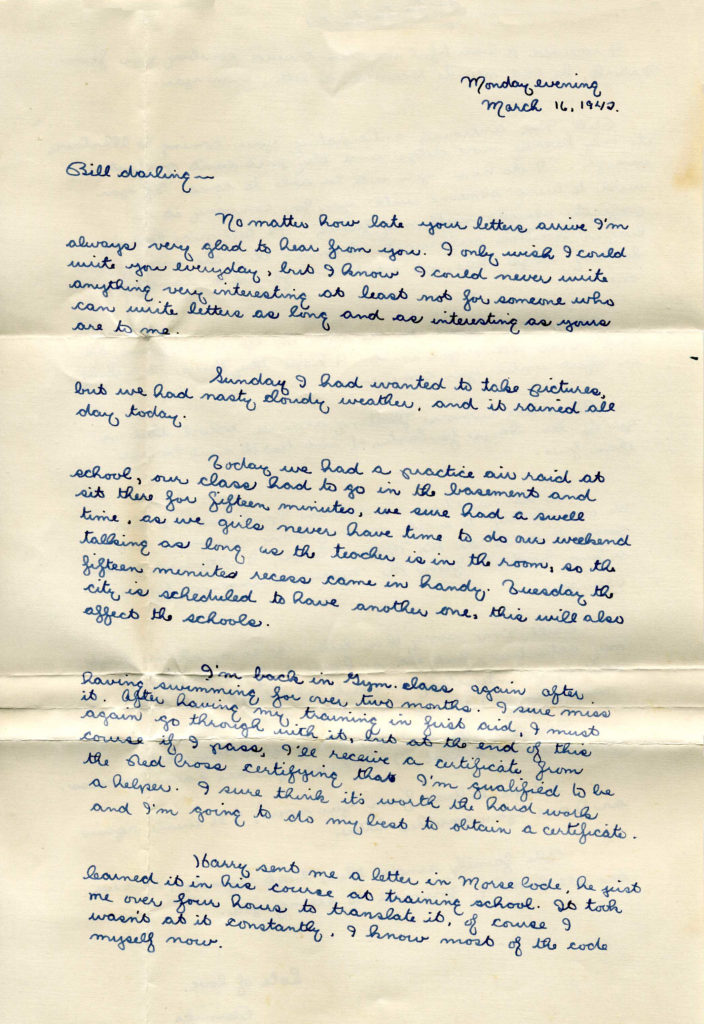 Monday evening
March 16, 1942.
Bill darling~
No matter how late your letters arrive I'm
always very glad to hear from you. I only wish I could
write you everyday, but I know I could never write
anything very interesting at least not for someone who
can write letters as long and as interesting as yours
are to me.
Sunday I had wanted to take pictures,
but we had nasty cloudy weather, and it rained all
day today.
Today we had a practice air raid at
school, our class had to go in the basement and
sit there for fifteen minutes, we sure had a swell
time, as we girls never have time to do our weekend
talking as long as the teacher is in the room, so the
fifteen minutes recess came in handy. Tuesday the
city is scheduled to have another one, this will also
affect the schools.
I'm back in Gym. class again after
having swimming for over two months. I sure miss
it. After having my training in first aid, I must
again go through with it, but at the end of this
course if I pass, I'll receive a certificate from
the Red Cross certifying that I'm qualified to be
a helper. I sure think it's worth the hard work
and I'm going to do my best to obtain a certificate.
Harry sent me a letter in Morse Code, he just
learned it in his course at training school. It took
me over four hours to translate it, of course I
wasn't at it constantly. I know most of the code
myself now.